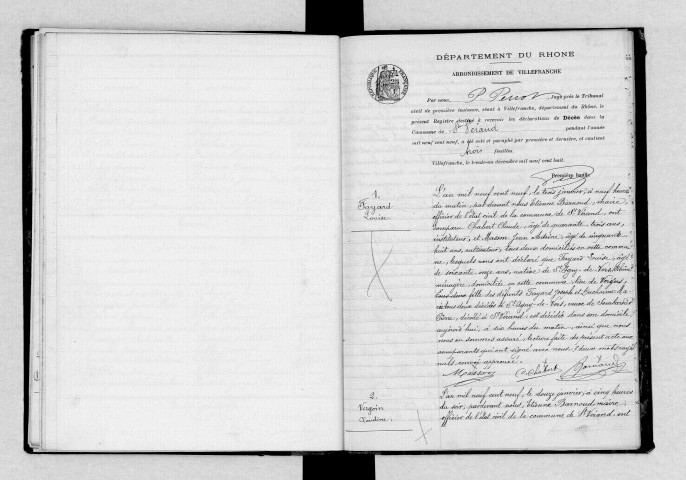 DÉPARTEMENT DU RHONE
ARRONDISSEMENT DE VILLEFRANCHE
Par nous, P. Perrot, Juge près le Tribunal
civil de première instance, séant à Villefranche, département du Rhône, le
présent Registre destiné à recevoir les déclarations de Décès dans la
Commune de St Vérand pendant l'année
mil neuf cent neuf, a été coté et paraphé par première et dernière, et contient
trois feuilles.
Villefranche, le trente-un décembre mil neuf cent huit.
Première feuille
1.
Fayard
Louise
L'an mil neuf cent neuf, le trois janvier, à neuf heures
du matin, par devant nous Etienne Barnoud, maire,
officier de l'état civil de la commune de St Vérand, ont
comparu Chabert Claude, âgé de quarante trois ans,
instituteur, et Masson Jean Antoine, âgé de cinquante
huit ans, cultivateur, tous deux domiciliés en cette commu
ne, lesquels nous ont déclaré que Fayard Louise, âgée
de soixante onze ans, native de St Igny de Vers, Rhône
ménagère, domiciliée en cette commune, lieu de
fille des défunts Fayard Joseph et
tous deux décédés à St Igny-de-Vers, veuve de
Pierre, décédé à St Vérand, est décédée dans son domicile
aujourd'hui, à six heures du matin, ainsi que nous
nous en sommes assuré, lecture faite du présent acte aux
comparants qui ont signé avec nous. deux mots rayés
nuls approuvé.
Masson C. Chabert Barnoud
2.
Vergoin
L'an mil neuf cent neuf, le douze janvier, à cinq heures
du soir, par devant nous, Etienne Barnoud, maire,
officier de l'état civil de la commune de St Vérand, ont